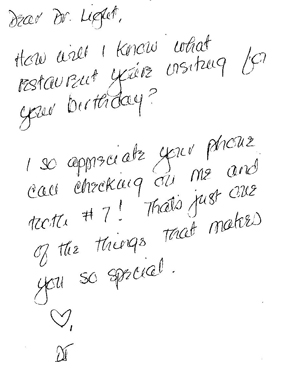 Dear Dr. Light,
How will I know what
restaurant you're visiting for
your birthday?
I so appreciate your phone
call checking on me and
tooth #7! That's just one
of the things that makes
you so special.
♡,
DT